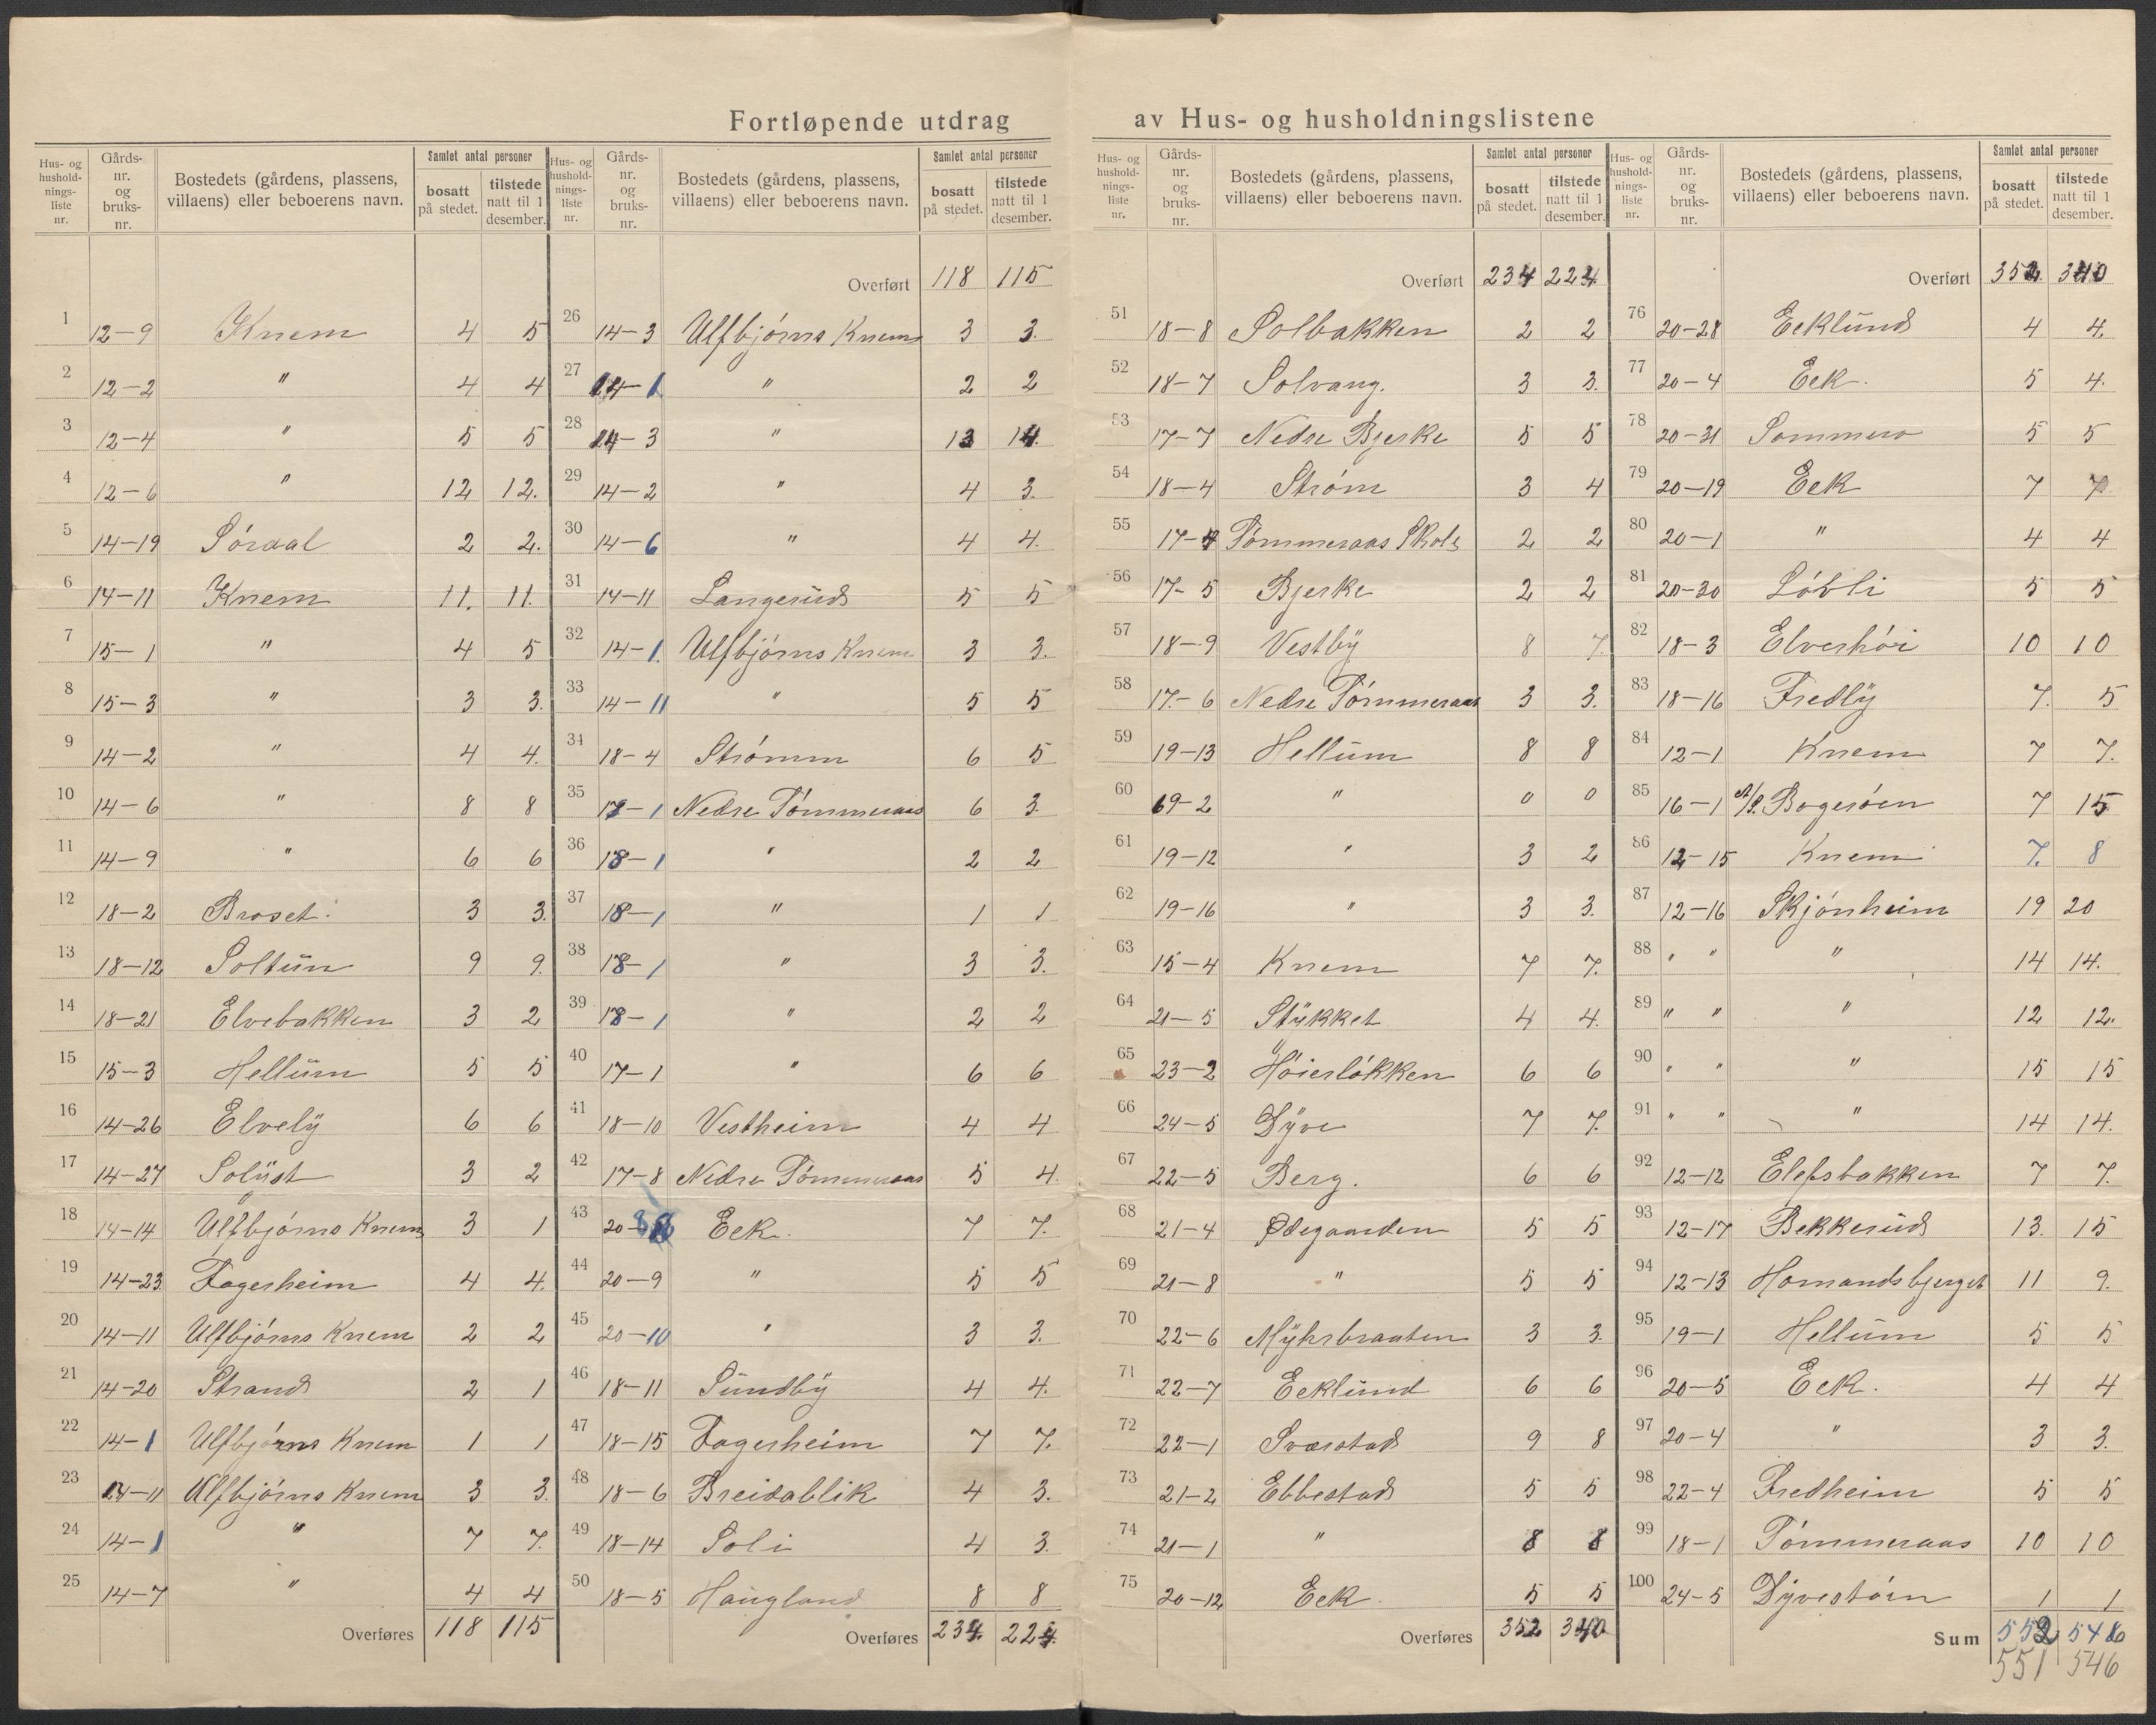 Fortløpende utdrag av Hus- og husholdningslistene
Hus- og husholdnings-liste nr. | Gårds-nr. og bruks-nr. | Bostedets (gårdens, plassens, villaens) eller beboerens navn. | Samlet antal personer | bosatt på stedet. | tilstede natt til 1 desember.
1 12-9 Knem 4 5
2 12-2 " 4 4
3 12-4 " 5 5
4 12-6 " 12 12.
5 14-19 Söraal 2 2.
6 14-11 Knem 11. 11.
7 15-1 " 4 5
8 15-3 " 3 3.
9 14-2 " 4 4.
10 14-6 " 8 8
11 14-9 " 6 6
12 18-2 Broset. 3 3.
13 18-12 Soltun 9 9.
14 18-21 Elvebakken 3 2
15 15-3 Hellum 5 5
16 14-26 Elvely 6 6
17 14-27 Solyst 3 2
18 14-14 Ulfbjörns Knem 3 1
19 14-23 Fagerheim 4 4.
20 14-11 Ulfbjörns Knem 2 2
21 14-20 Strand 2 1
22 14-1 Ulfbjörns Knem 1 1
23 14-11 Ulfbjörns Knem 3 3.
24 14-1 " 7 7.
25 14-7 " 4 4
Overføres 118 115
Hus- og husholdnings-liste nr. | Gårds-nr. og bruks-nr. | Bostedets (gårdens, plassens, villaens) eller beboerens navn. | Samlet antal personer | bosatt på stedet. | tilstede natt til 1 desember.
Overført 118 115
26 14-3 Ulfbjörns Knem 3 3.
27 14-1 " 2 2
28 14-3 " 13 14.
29 14-2 " 4 3.
30 14-6 " 4 4.
31 14-11 Langerud 5 5
32 14-1. Ulfbjörns Knem 3 3.
33 14-11 " 5 5
34 18-4 Strömm 6 5
35 18-1 Nedre Tömmeraas 6 3.
36 18-1 " 2 2
37 18-1 " 1 1
38 18-1 " 3 3.
39 18-1 " 2 2
40 17-1 " 6 6
41 18-10 Vestheim 4 4
42 17-8 Nedre Tömmeraas 5 4.
43 20- Eek. 7 7.
44 20-9 " 5 5
45 20-10 " 3 3.
46 18-11 Sundby 4 4.
47 18-15 Fagerheim 7 7.
48 18-6 Breidablik 4 3.
49 18-14 Soli 4 3.
50 18-5 Haugland 8 8
Overføres 234. 224.
Hus- og husholdnings-liste nr. | Gårds-nr. og bruks-nr. | Bostedets (gårdens, plassens, villaens) eller beboerens navn. | Samlet antal personer | bosatt på stedet. | tilstede natt til 1 desember.
Overført 234 224.
51 18-8 Solbakken 2 2
52 18-7 Solvang. 3 3.
53 17-7 Nedre Bjerke 5 5
54 18-4 Ström 3 4
55 17-4 Tömmeraas Skole 2 2
56 17-5 Bjerke 2 2
57 18-9 Vestby 8 7.
58 17-6 Nedre Tömmeraas 3 3.
59 19-13 Hellum 8 8
60 19-2 " 0 0
61 19-12 " 3 2
62 19-16 " 3 3.
63 15-4 Knem 7 7.
64 21-5 Stykket 4 4.
65 23-2 Höierlökken 6 6
66 24-5 Dyve 7 7.
67 22-5 Berg. 6 6
68 21-4 Ødegaarden 5 5
69 21-8 " 5 5
70 22-6 Myhrbraaten 3 3.
71 22-7 Eeklund 6 6
72 22-1 Sværstad 9 8
73 21-2 Ebbestad 5 5
74 21-1 " 8 8
75 20-12 Eek. 5 5
Overføres 352 340
Hus- og husholdnings-liste nr. | Gårds-nr. og bruks-nr. | Bostedets (gårdens, plassens, villaens) eller beboerens navn. | Samlet antal personer | bosatt på stedet. | tilstede natt til 1 desember.
Overført 352. 340
76 20-28 Eeklund 4 4.
77 20-4 Eek. 5 4.
78 20-31 Sommero 5 5
79 20-19 Eek 7 7
80 20-1 " 4 4
81 20-30 Lövli 5 5
82 18-3 Elverhöi 10 10
83 18-16 Fredly 7. 5
84 12-1 Knem 7 7.
85 16-1 Bogeröen 7 15
86 12-15 Knem 7. 8
87 12-16 Skjönheim 19 20
88 " " " 14 14.
89 " " " 12 12.
90 " " " 15 15
91 " " " 14 14.
92 12-12 Elefsbakken 7 7.
93 12-17 Bekkerud 13. 15
94 12-13 Homandsbjerget 11 9.
95 19-1 Hellum 5 5
96 20-5 Eek. 4 4
97 20-4 " 3 3.
98 22-4 Fredheim 5 5
99 18-1 Tömmeraas 10 10
100 24-5 Dyvestöen 1 1
Sum 552 546
551 546